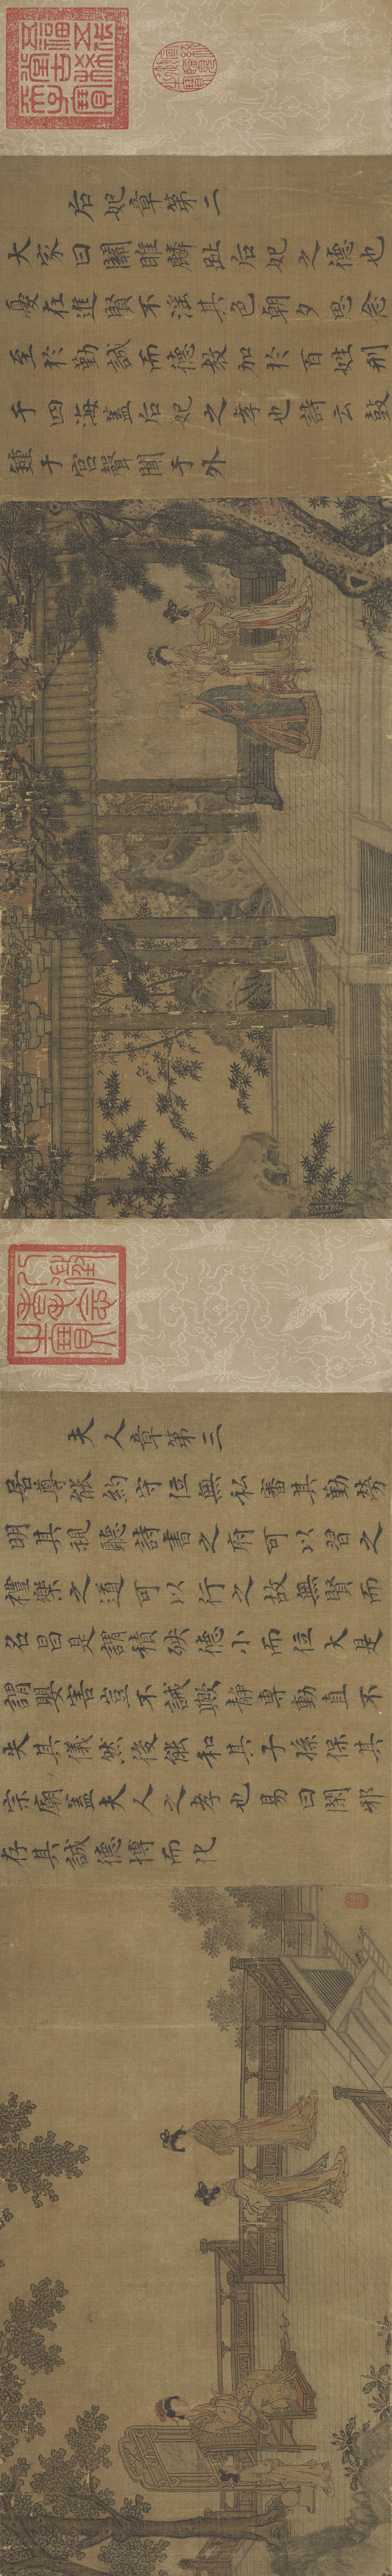 五福五代堂古稀天子寶
后妃章第二
大家曰關雎麟趾后妃之德也
憂在進賢不淫其色朝夕思念
至於勤誡而德教加於百姓刑
于四海蓋后妃之孝也詩云鼓
鍾于宮聲聞于外
八徵耄念之寶
夫人章第三
居尊能約守位無私審其勤勞
明其視聽詩書之府可以習之
禮樂之道可以行之故無賢而
名昌是謂積殃德小而位大是
謂嬰害豈不誡歟靜專動直不
失其儀然後能和其子孫保其
宗廟蓋夫人之孝也易曰閑邪
存其誠德博而化